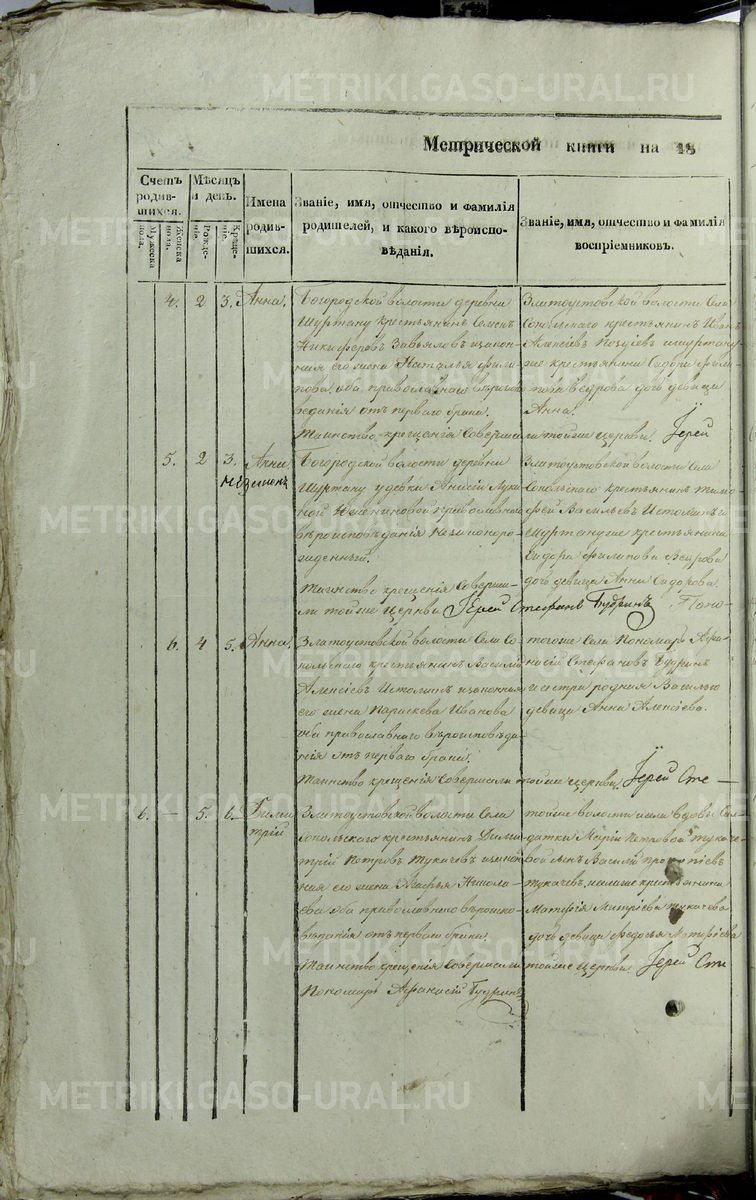 METRIKI.GASO-URAL.RU
Метрической книги на 18
Счетъ родив-шихся.
Мужеска пола.
Женска пола.
Мѣсяцъ и день.
Рожде-ніе.
Креще-ніе.
Имена родив-шихся.
Званіе, имя, отчество и фамилія
родителей, и какого вѣроиспо-
вѣданія.
Званіе, имя, отчество и фамилія
воспріемниковъ.
4. 2 3. Анна.
Богородской волости деревни
Шуртану крестьянинъ Семенъ
Никифоровъ Завьяловъ изакон
ная его жена Наталья Фили
пова оба православнаго вѣроиспо
веданія отъ перваго брака.
Таинство крещенія Соверша
Златоустовской волости Села
Сопольскаго крестьянинъ Иванъ
Алексіевъ
же крестьянина Сидора Филип
пова Ведрова дочь девица
Анна.
ли тойже церкви. Іерей
5. 2 3. Анна
незаконн
Богородской волости деревни
Шуртану у девки Анисіи Луки
ной православнаго
вѣроисповѣданія Незаконоро
жденный.
Таинство крещенія Соверши-
ли тойже Церкви Іерей Стефанъ Будринъ Поно-
Златоустовской волости Села
Сопольскаго крестьянинъ Тимо
фей Васильевъ Истоминъ и
Шуртану же крестьянина
Сидора Филипова Ведрова
дочь девица Анна Сидорова.
6. 4 5. Анна.
Златоустовской волости Села Со
польскаго крестьянинъ Василій
Алексіевъ Истоминъ изаконная
его жена Параскева Иванова
оба православнаго вѣроисповѣда
нія отъ перваго брака.
Таинство крещенія Совершали
тогоже Села Пономарь Афа
насій Стефановъ Будринъ
и сестра родная Василью
девица Анна Алексіева.
тойже церкви. Іерей Сте
6. — 5. 6. Дими
трій
Златоустовской волости Села
Сопольскаго крестьянинъ Дими
трій Петровъ Тукачевъ изакон
ная его жена Агафья Никола
ева оба православнаго вѣроиспо
вѣданія отъ перваго брака.
Таинство крещенія Совершали
Пономарь Афанасій Будринъ
тойже волости исела вдовы Сол
датки Маріи Петровой Тукаче
вой сынъ Василій Прокопіевъ
Тукачевъ, исела же крестьянина
Матфія Митріева Тукачева
дочь девица Федосья Матфіева
тойже церкви. Іерей Сте